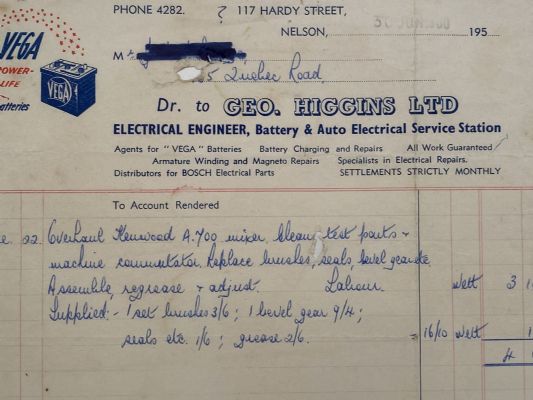 PHONE 4282. ? 117 HARDY STREET,
NELSON, 30 JUN 195
M
Quebec Road.
VEGA
POWER-
LIFE
VEGA
Batteries
Dr. to GEO. HIGGINS LTD
ELECTRICAL ENGINEER, Battery & Auto Electrical Service Station
Agents for "VEGA" Batteries Battery Charging and Repairs All Work Guaranteed
Armature Winding and Magneto Repairs Specialists in Electrical Repairs.
Distributors for BOSCH Electrical Parts SETTLEMENTS STRICTLY MONTHLY
To Account Rendered
22. Overhaul Kenwood A.700 mixer, clean, test parts +
machine commutator. Replace brushes, seals, bevel gear etc.
Assemble, regrease + adjust. Labour. Nett 3
Supplied:- 1 set brushes 3/6; 1 bevel gear 9/4;
seals etc. 1/6; grease 2/6. = 16/10 Nett
4